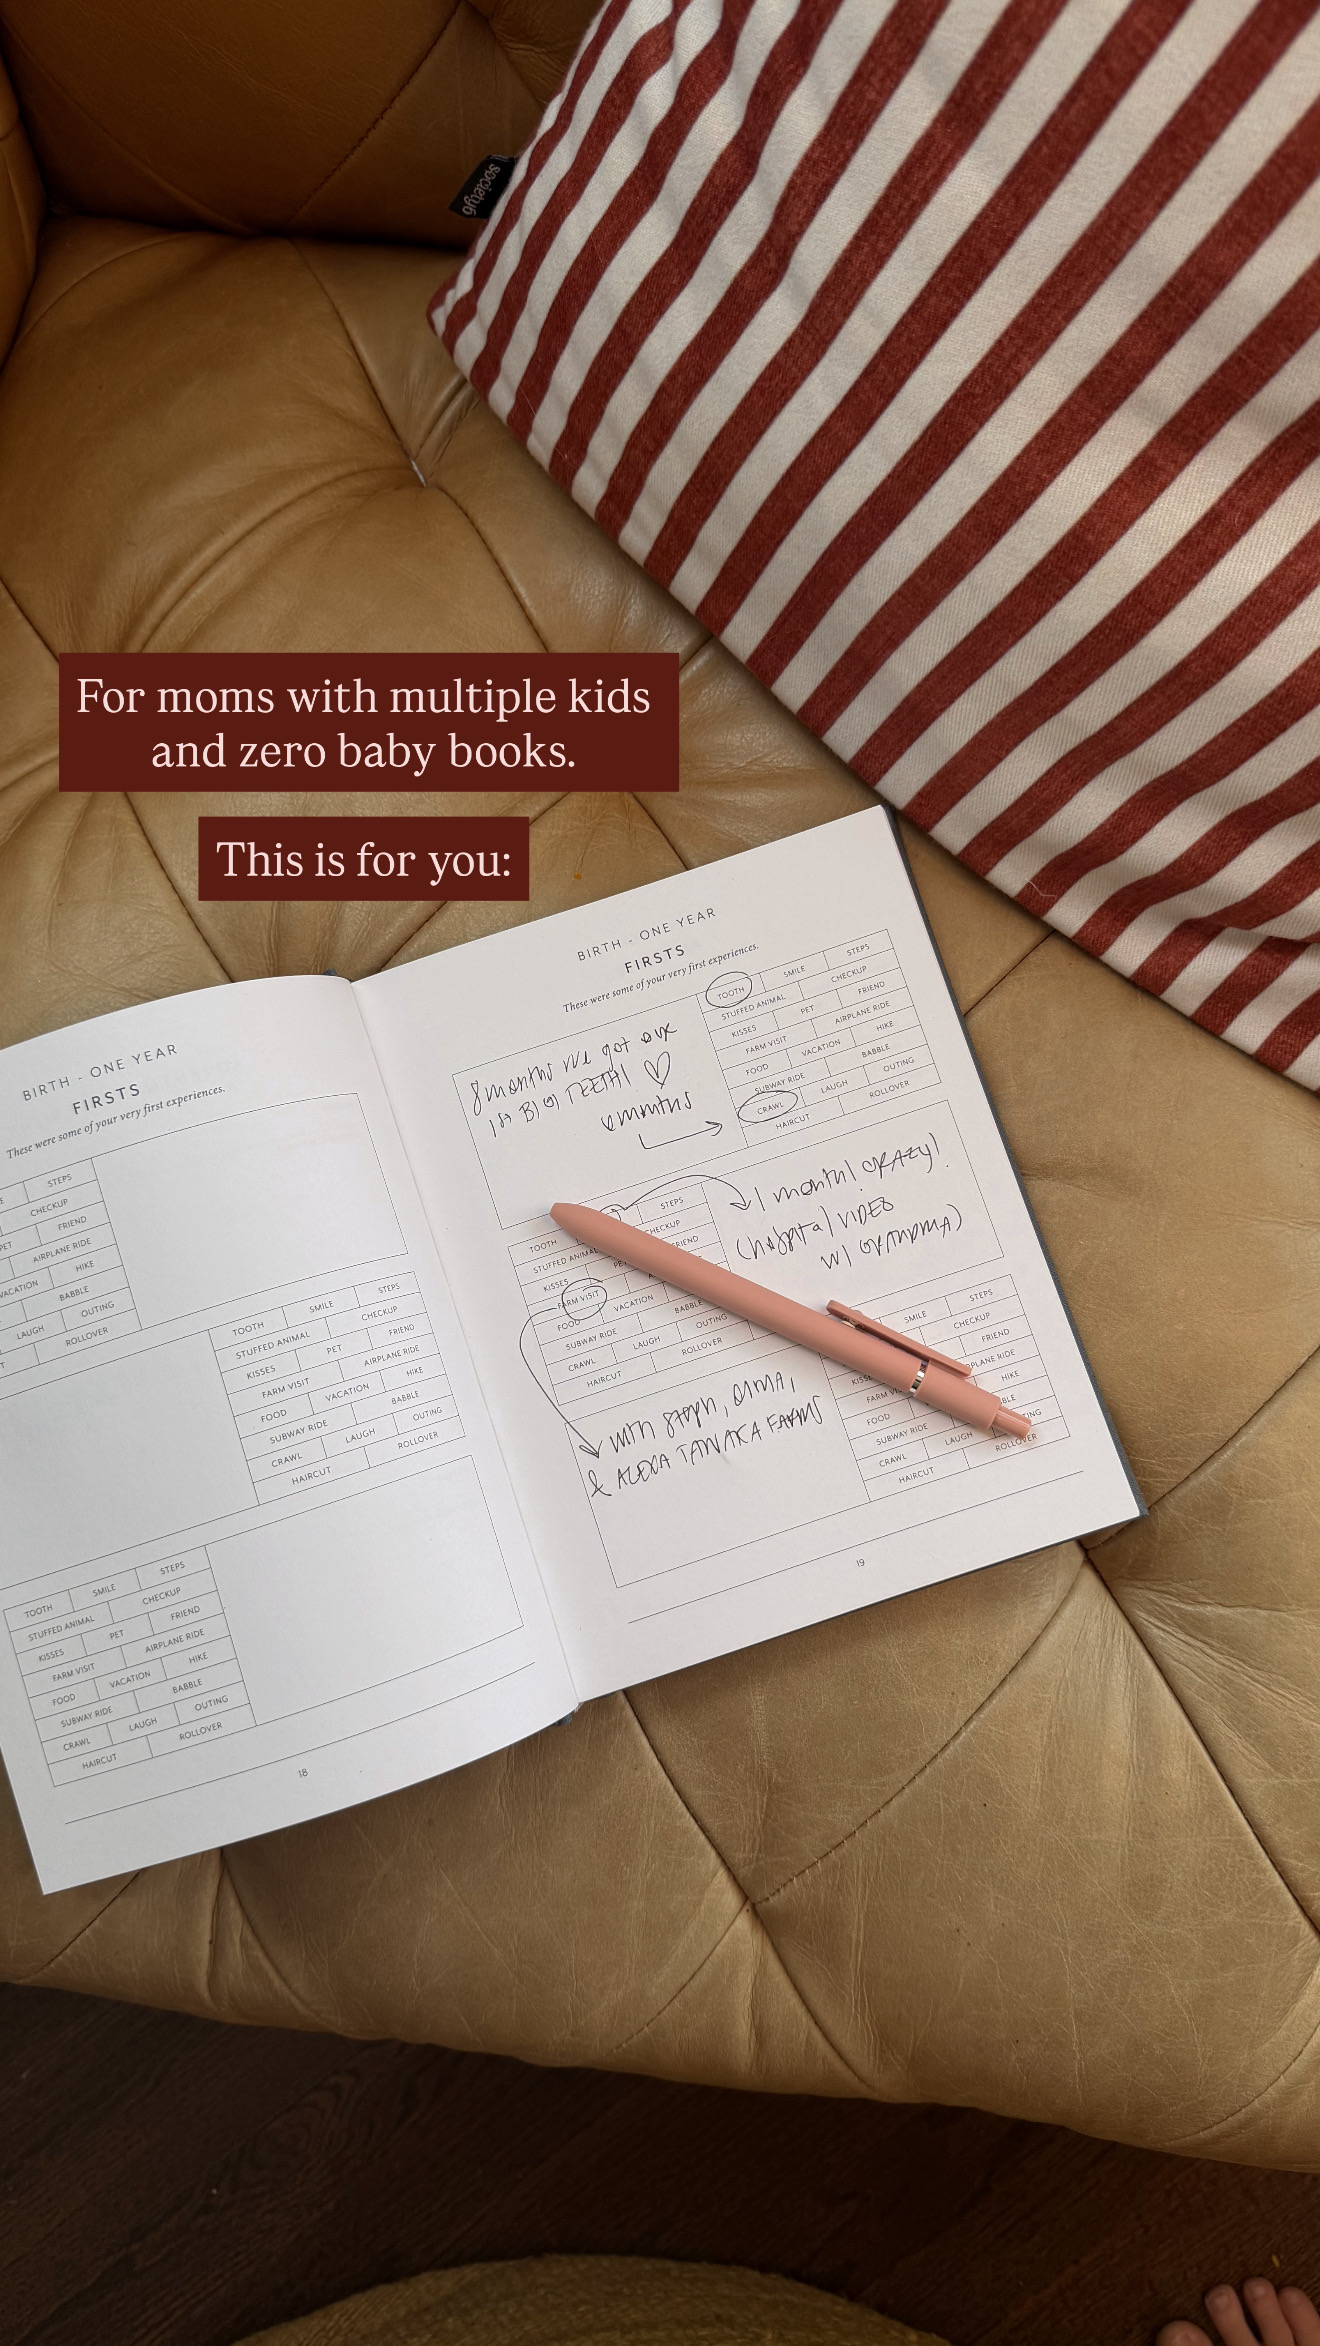 society6
For moms with multiple kids
and zero baby books.
This is for you:
BIRTH - ONE YEAR
FIRSTS
These were some of your very first experiences.
STEPS
CHECKUP
FRIEND
AIRPLANE RIDE
VACATION HIKE
BABBLE
LAUGH OUTING
ROLLOVER
TOOTH SMILE STEPS
STUFFED ANIMAL CHECKUP
KISSES PET FRIEND
FARM VISIT AIRPLANE RIDE
FOOD VACATION HIKE
SUBWAY RIDE BABBLE
CRAWL LAUGH OUTING
HAIRCUT ROLLOVER
TOOTH SMILE STEPS
STUFFED ANIMAL CHECKUP
KISSES PET FRIEND
FARM VISIT AIRPLANE RIDE
FOOD VACATION HIKE
SUBWAY RIDE BABBLE
CRAWL LAUGH OUTING
HAIRCUT ROLLOVER
18
BIRTH - ONE YEAR
FIRSTS
These were some of your very first experiences.
8 months we got our
1st BIG TEETH! ♡
months
TOOTH SMILE STEPS
STUFFED ANIMAL CHECKUP
KISSES PET FRIEND
FARM VISIT AIRPLANE RIDE
FOOD VACATION HIKE
SUBWAY RIDE BABBLE
CRAWL LAUGH OUTING
HAIRCUT ROLLOVER
TOOTH STEPS
STUFFED ANIMAL CHECKUP
KISSES FRIEND
FARM VISIT
FOOD VACATION
SUBWAY RIDE BABBLE
CRAWL LAUGH OUTING
HAIRCUT ROLLOVER
1 month! CRAZY!
(hospital VIDEO
W/ GRANDMA)
with Steph, OMA,
& ALEXA TANAKA FARMS
SMILE STEPS
CHECKUP
FRIEND
HIKE
FOOD
SUBWAY RIDE
CRAWL LAUGH
HAIRCUT ROLLOVER
19